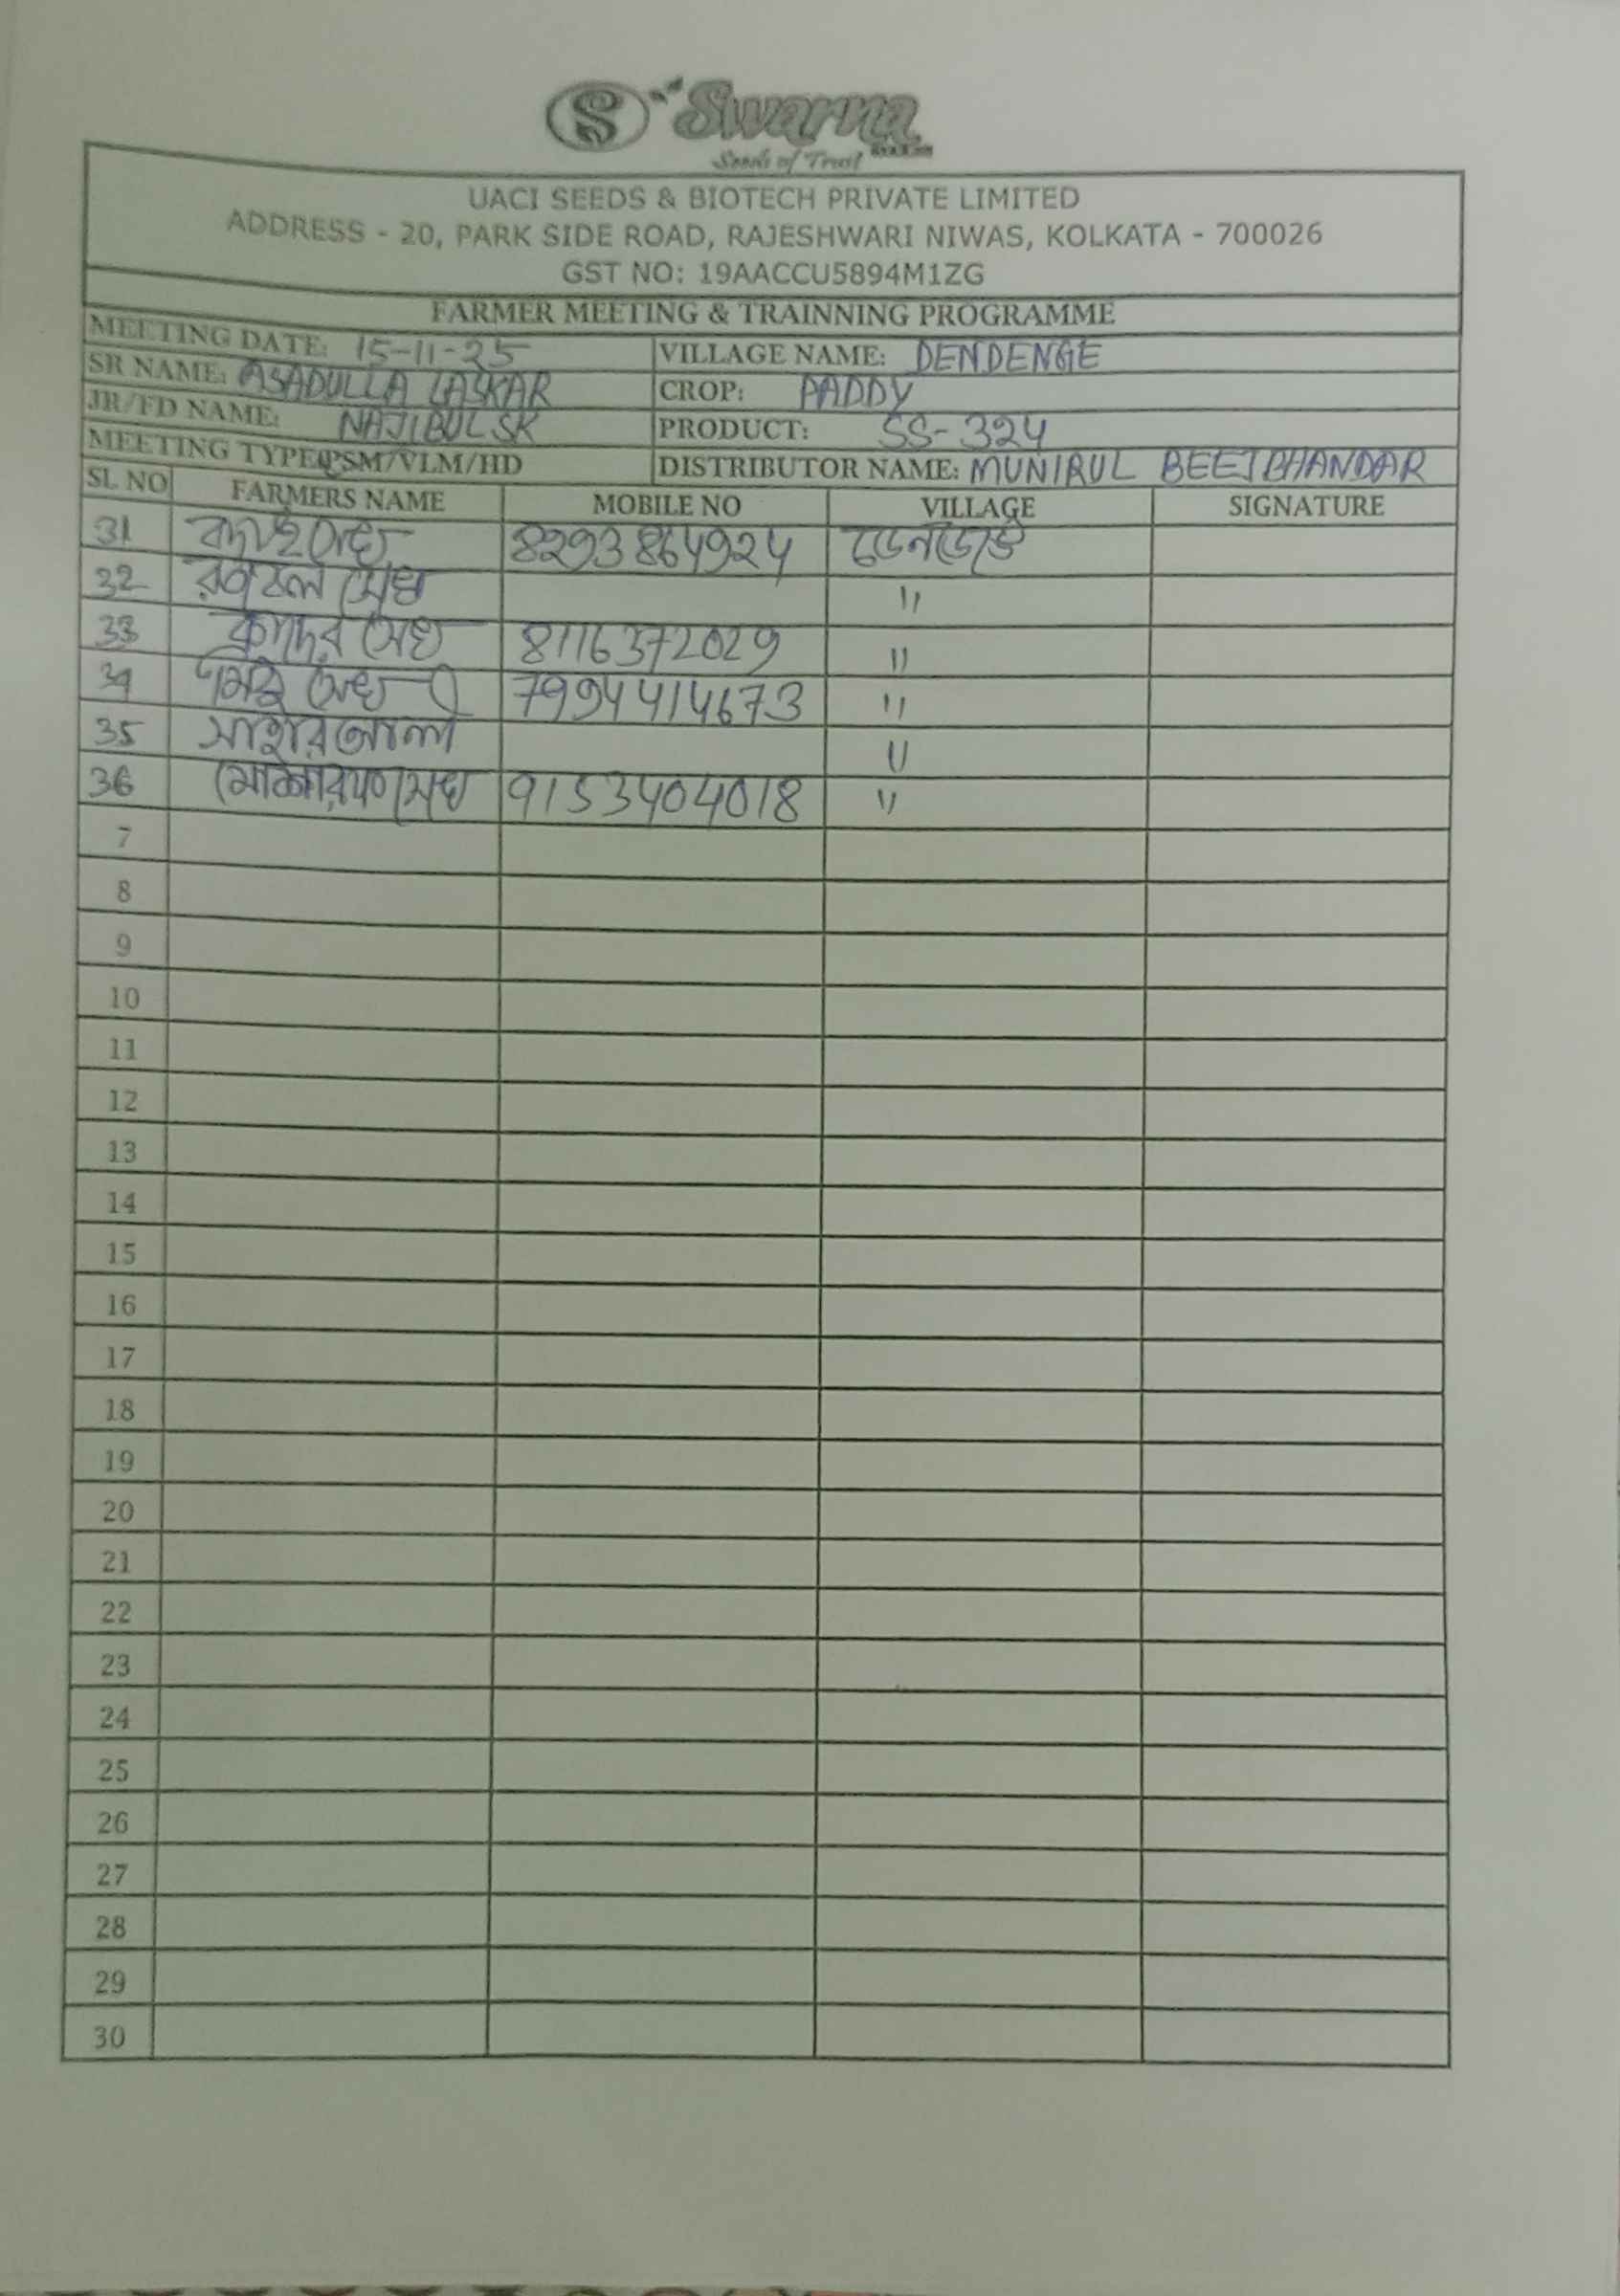 S Swarna
Seeds of Trust
UACI SEEDS & BIOTECH PRIVATE LIMITED
ADDRESS - 20, PARK SIDE ROAD, RAJESHWARI NIWAS, KOLKATA - 700026
GST NO: 19AACCU5894M1ZG
FARMER MEETING & TRAINNING PROGRAMME
MEETING DATE: 15-11-25 VILLAGE NAME: DENDENGE
SR NAME: ASADULLA LASKAR CROP: PADDY
JR/FD NAME: NAJIBUL SK PRODUCT: SS-324
MEETING TYPE PSM/VLM/HD DISTRIBUTOR NAME: MUNIRUL BEEJ BHANDAR
SL NO FARMERS NAME MOBILE NO VILLAGE SIGNATURE
31 8293864924
32 সেখ "
33 কাদের সেখ 8116372029 "
34 সেখ 7994414673 "
35 "
36 সেখ 9153404018 "
7
8
9
10
11
12
13
14
15
16
17
18
19
20
21
22
23
24
25
26
27
28
29
30